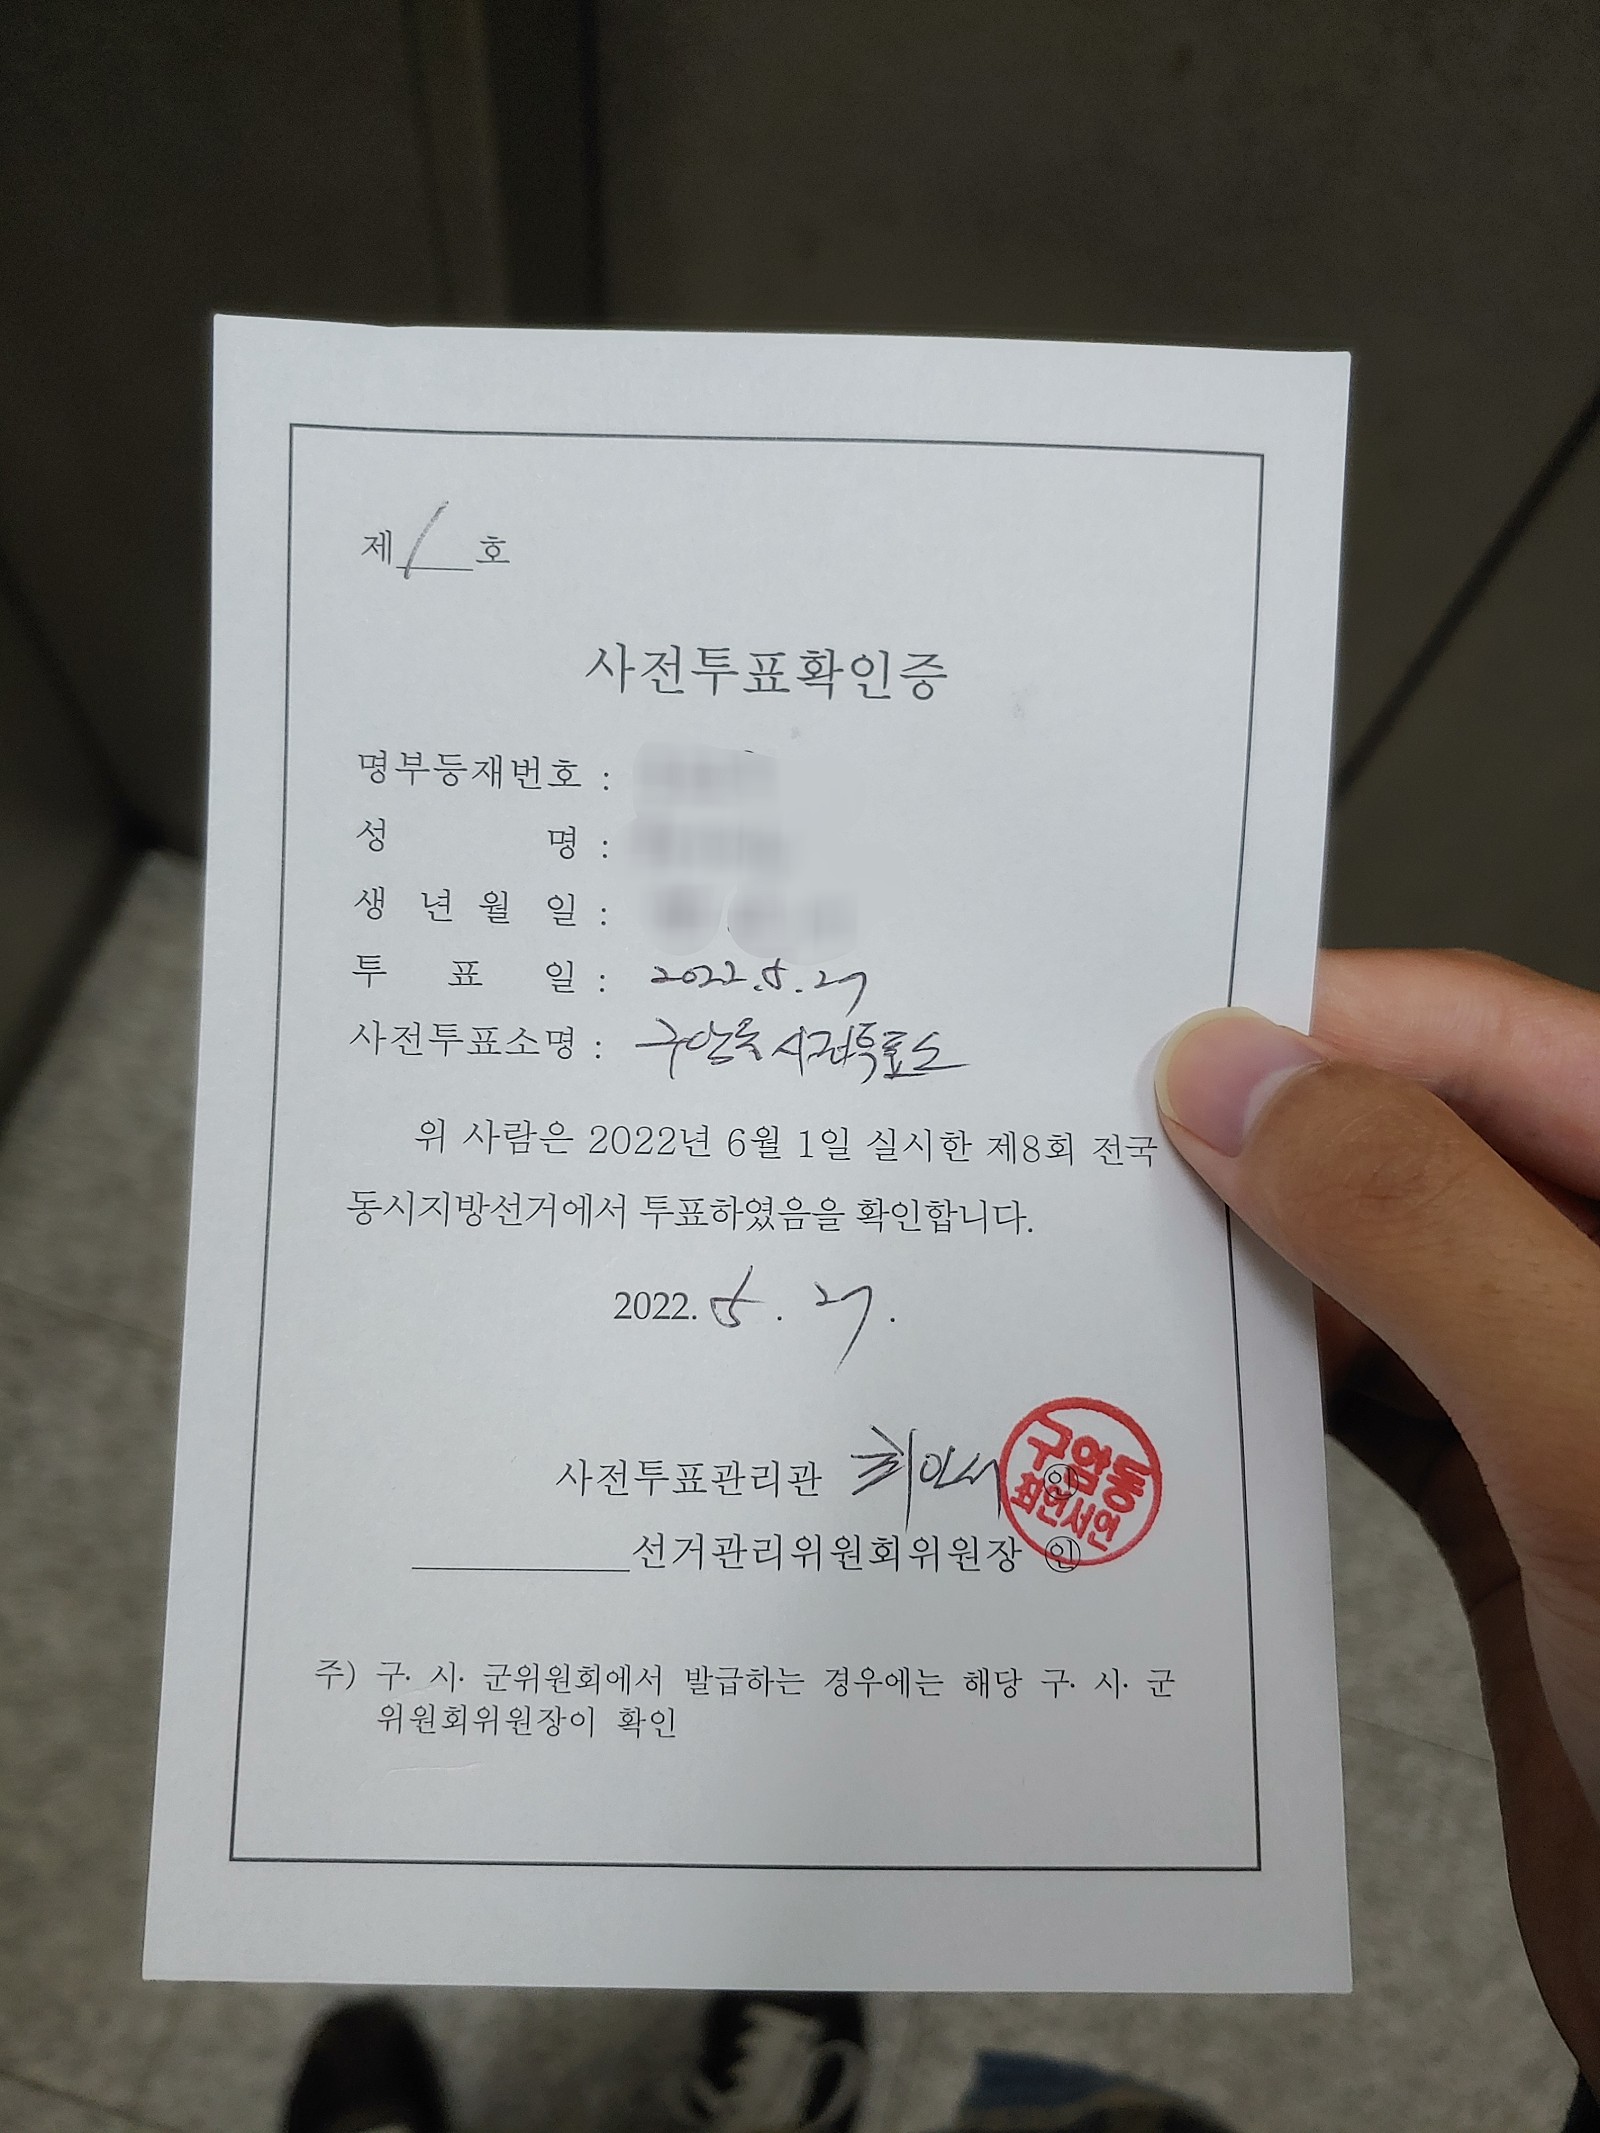 제 1 호
사전투표확인증
명부등재번호 :
성 명 :
생 년 월 일 :
투 표 일 : 2022.5.27
사전투표소명 : 구암동 사전투표소
위 사람은 2022년 6월 1일 실시한 제8회 전국
동시지방선거에서 투표하였음을 확인합니다.
2022. 5 . 27 .
사전투표관리관 최인서 ㊞
구암동
선거관리위원회위원장 ㊞
주) 구· 시· 군위원회에서 발급하는 경우에는 해당 구· 시· 군
위원회위원장이 확인